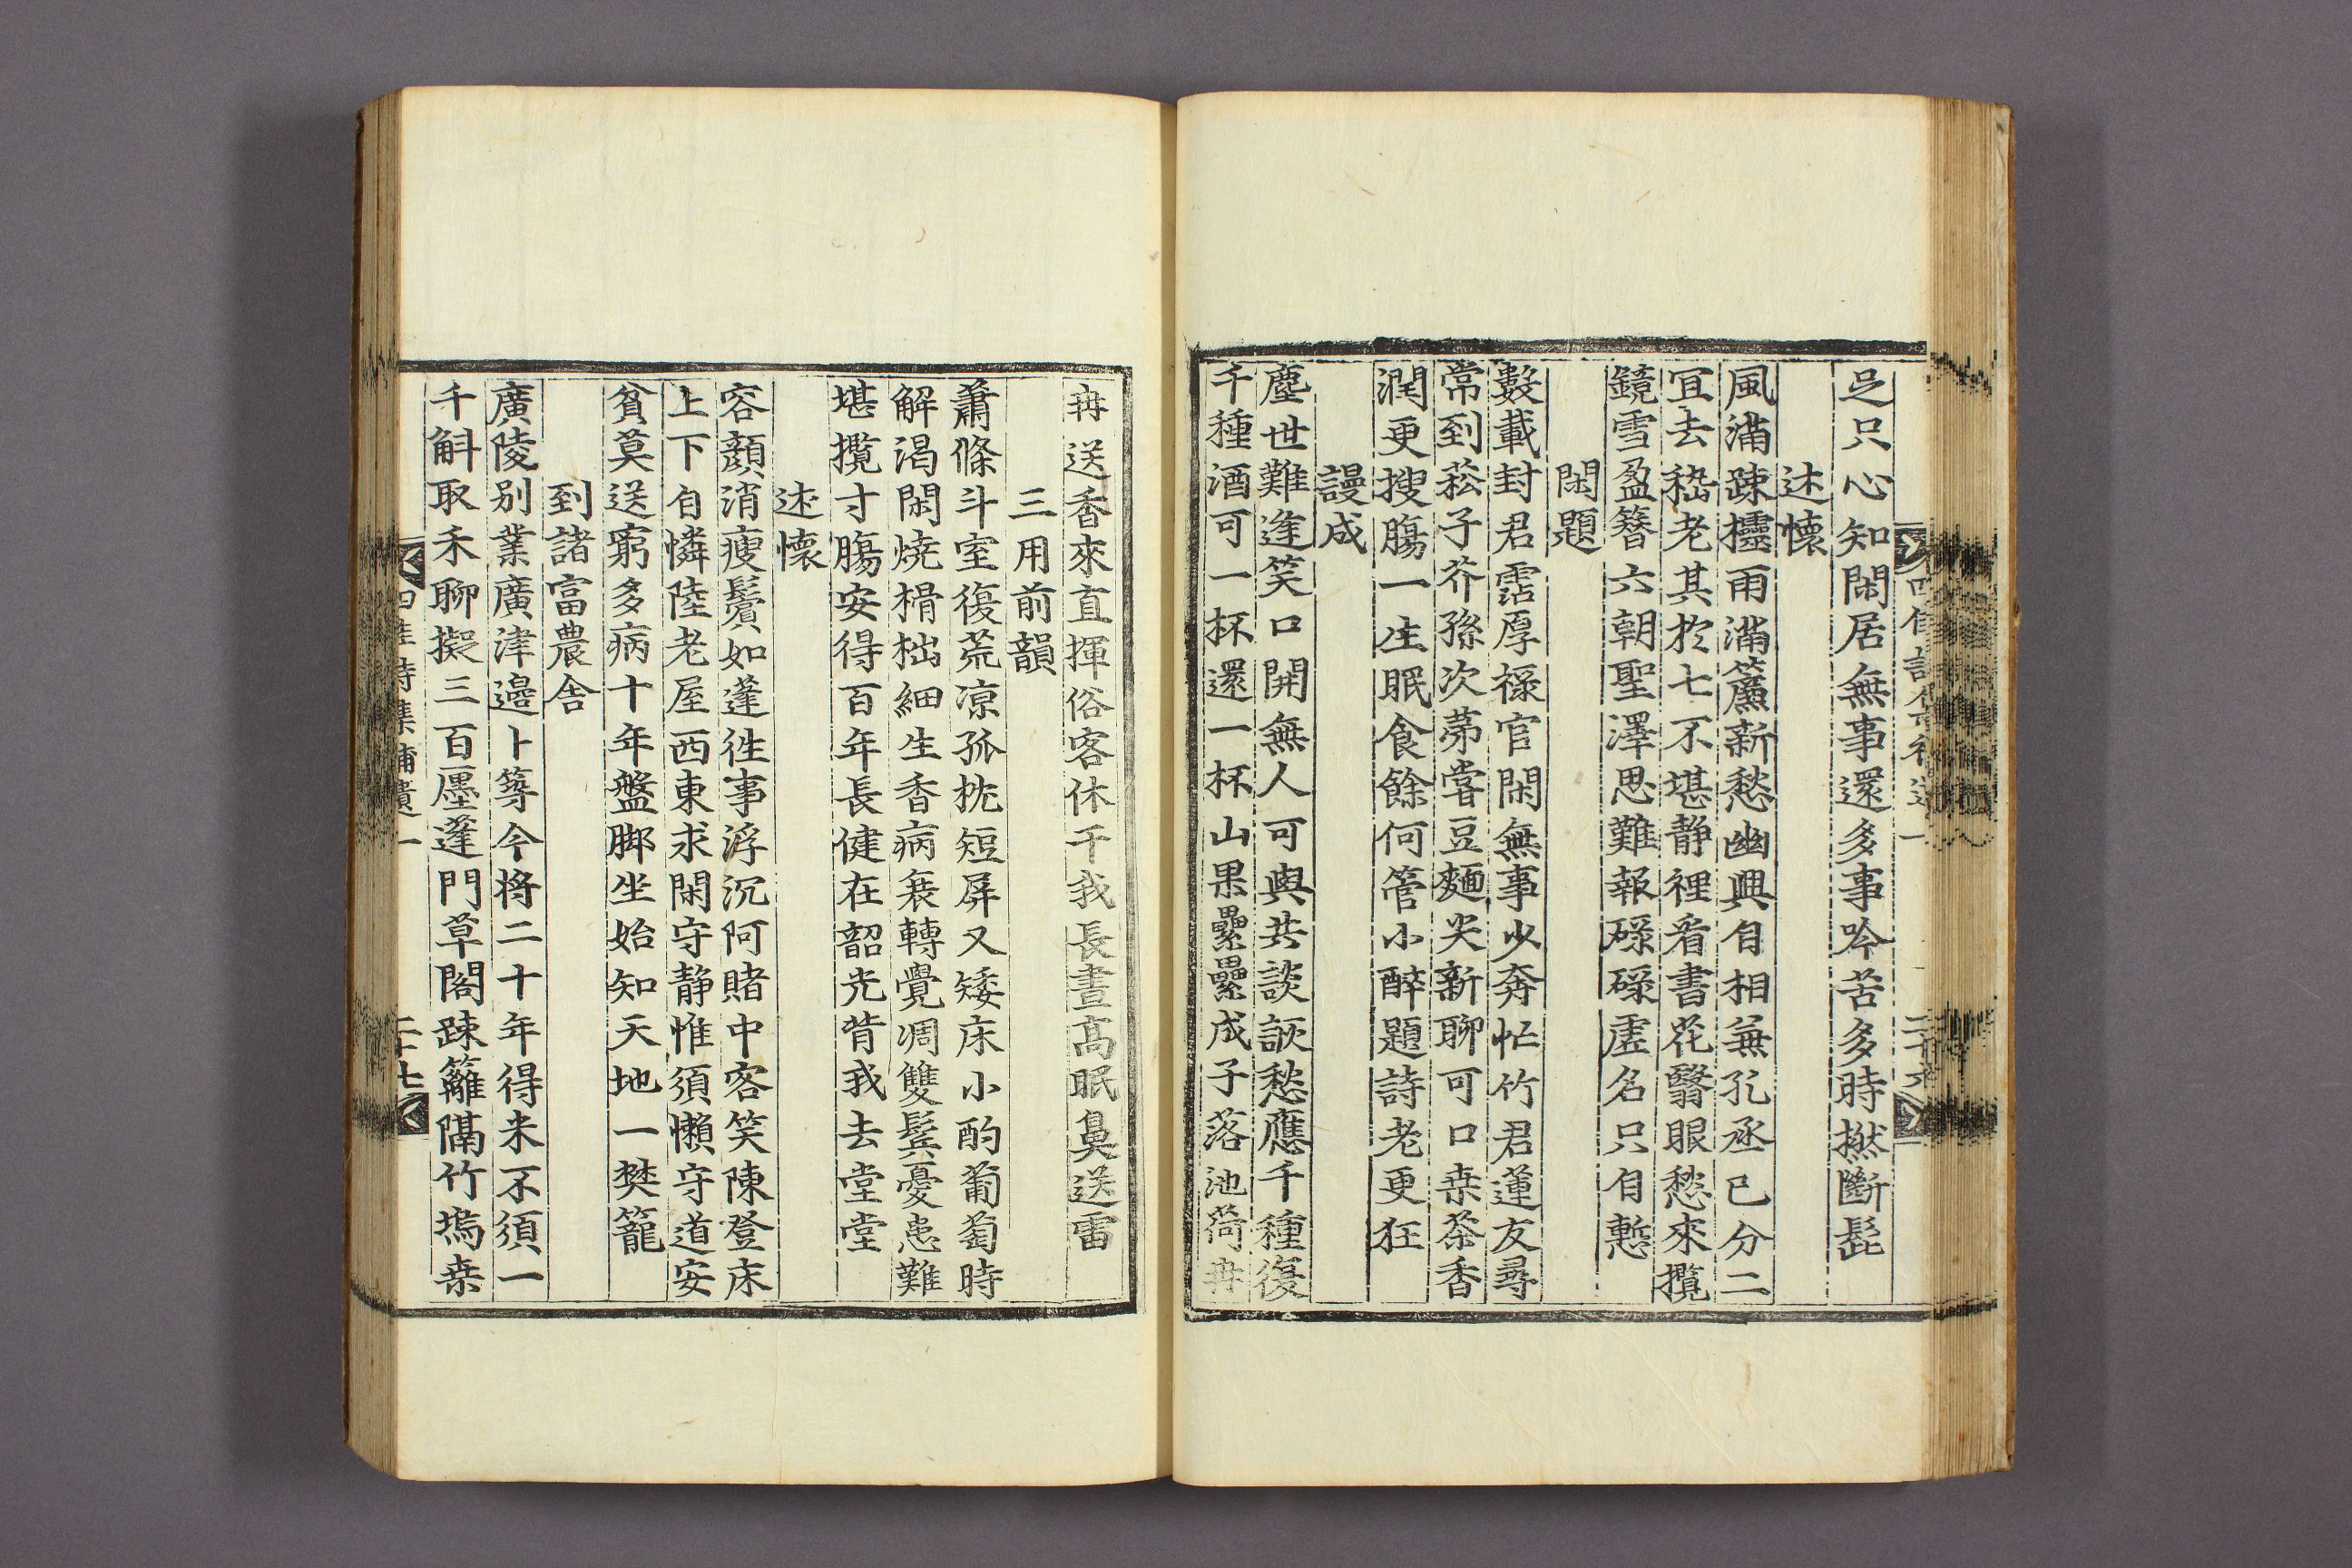 足只心知閑居無事還多事吟苦多時撚斷髭
述懷
風滿踈欞雨滿簾新愁幽興自相兼孔丞已分二
宜去嵇老其於七不堪静裡看書花翳眼愁來攬
鏡雪盈簪六朝聖澤思難報碌碌虛名只自慙
閑題
數載封君霑厚祿官閑無事少奔忙竹君蓮友尋
常到菘子芥孫次苐嘗豆麵哭新聊可口桒茶香
潤更搜膓一生眠食餘何管小醉題詩老更狂
謾成
塵世難逢笑口開無人可與共談詼愁應千種復
千種酒可一杯還一杯山果纍纍成子落池荷冉
冉送香來直揮俗客休干我長晝高眠鼻送雷
三用前韻
蕭條斗室復荒凉孤枕短屏又矮床小酌蔔萄時
解渴閑燒榾柮細生香病衰轉覺凋雙鬂憂患難
堪攬寸膓安得百年長健在韶光背我去堂堂
述懷
容顔消瘦鬢如蓬徃事浮沉阿睹中客笑陳登床
上下自憐陸老屋西東求閑守静惟須懶守道安
貧莫送窮多病十年盤脚坐始知天地一樊籠
到諸富農舎
廣陵别業廣津邉卜築今将二十年得米不須一
千斛取禾聊擬三百廛蓬門草閣踈籬隔竹塢桒
四佳詩集補遺一
二十七